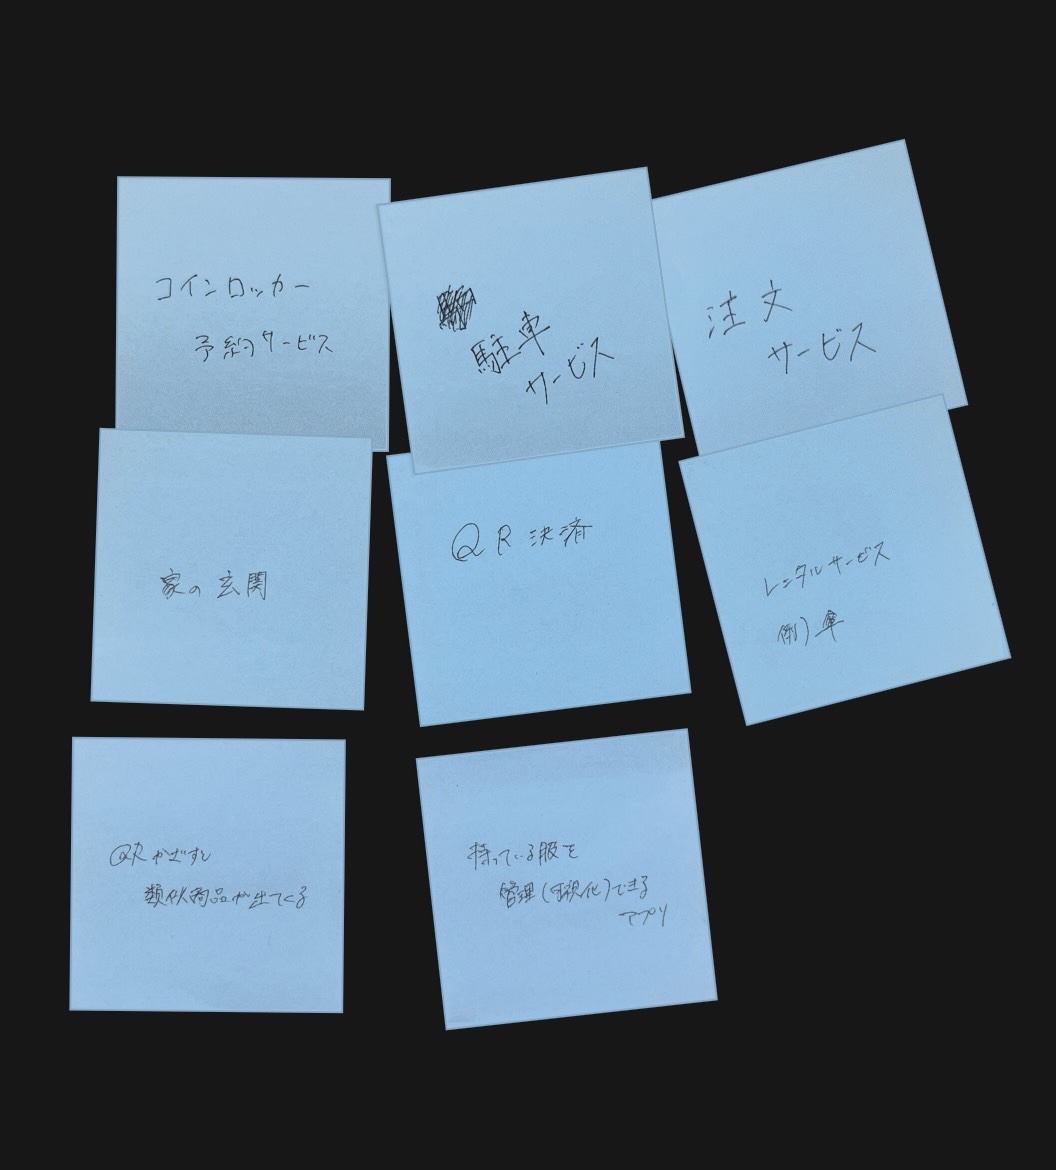 コインロッカー
予約サービス
駐車
サービス
注文
サービス
家の玄関
QR決済
レンタルサービス
例)傘
QRかざすし
類似商品が出てくる
持っている服を
管理(可視化)できる
アプリ